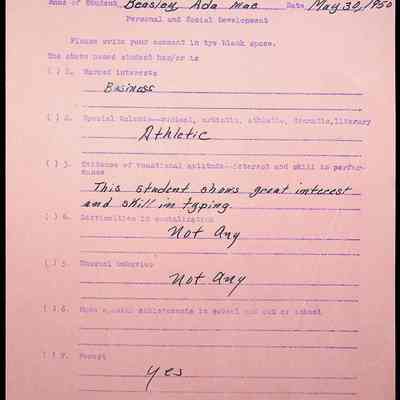 Name of Student Beasley Ada Mae Date May 30, 1950
Personal and Social Development
Please write your comment in the blank space.
The above named student has/or is
( ) 1. Marked interests
Business
( ) 2. Special Talents—musical, artistic, athletic, dramatic, literary
Athletic
( ) 3. Evidence of vocational aptitude—interest and skill in perfor-
mance
This student shows great interest
and skill in typing.
( ) 4. in
Not Any
( ) 5. Unusual behavior
Not Any
( ) 6. achievements in school and out of school
( ) 7. Prompt
Yes